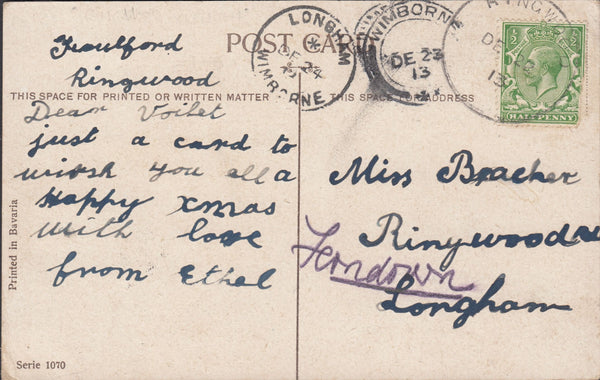 POST CARD
Ringwood
THIS SPACE FOR PRINTED OR WRITTEN MATTER
THIS SPACE FOR ADDRESS
Dear Voilet
just a card to
wish you all a
Happy xmas
with love
from Ethel
LONGHAM
DE 24
WIMBORNE
WIMBORNE
DE 23
13
RINGW
DE
13
½ ½
HALFPENNY
Miss Bracher
Ringwood
Longham
Printed in Bavaria
Serie 1070